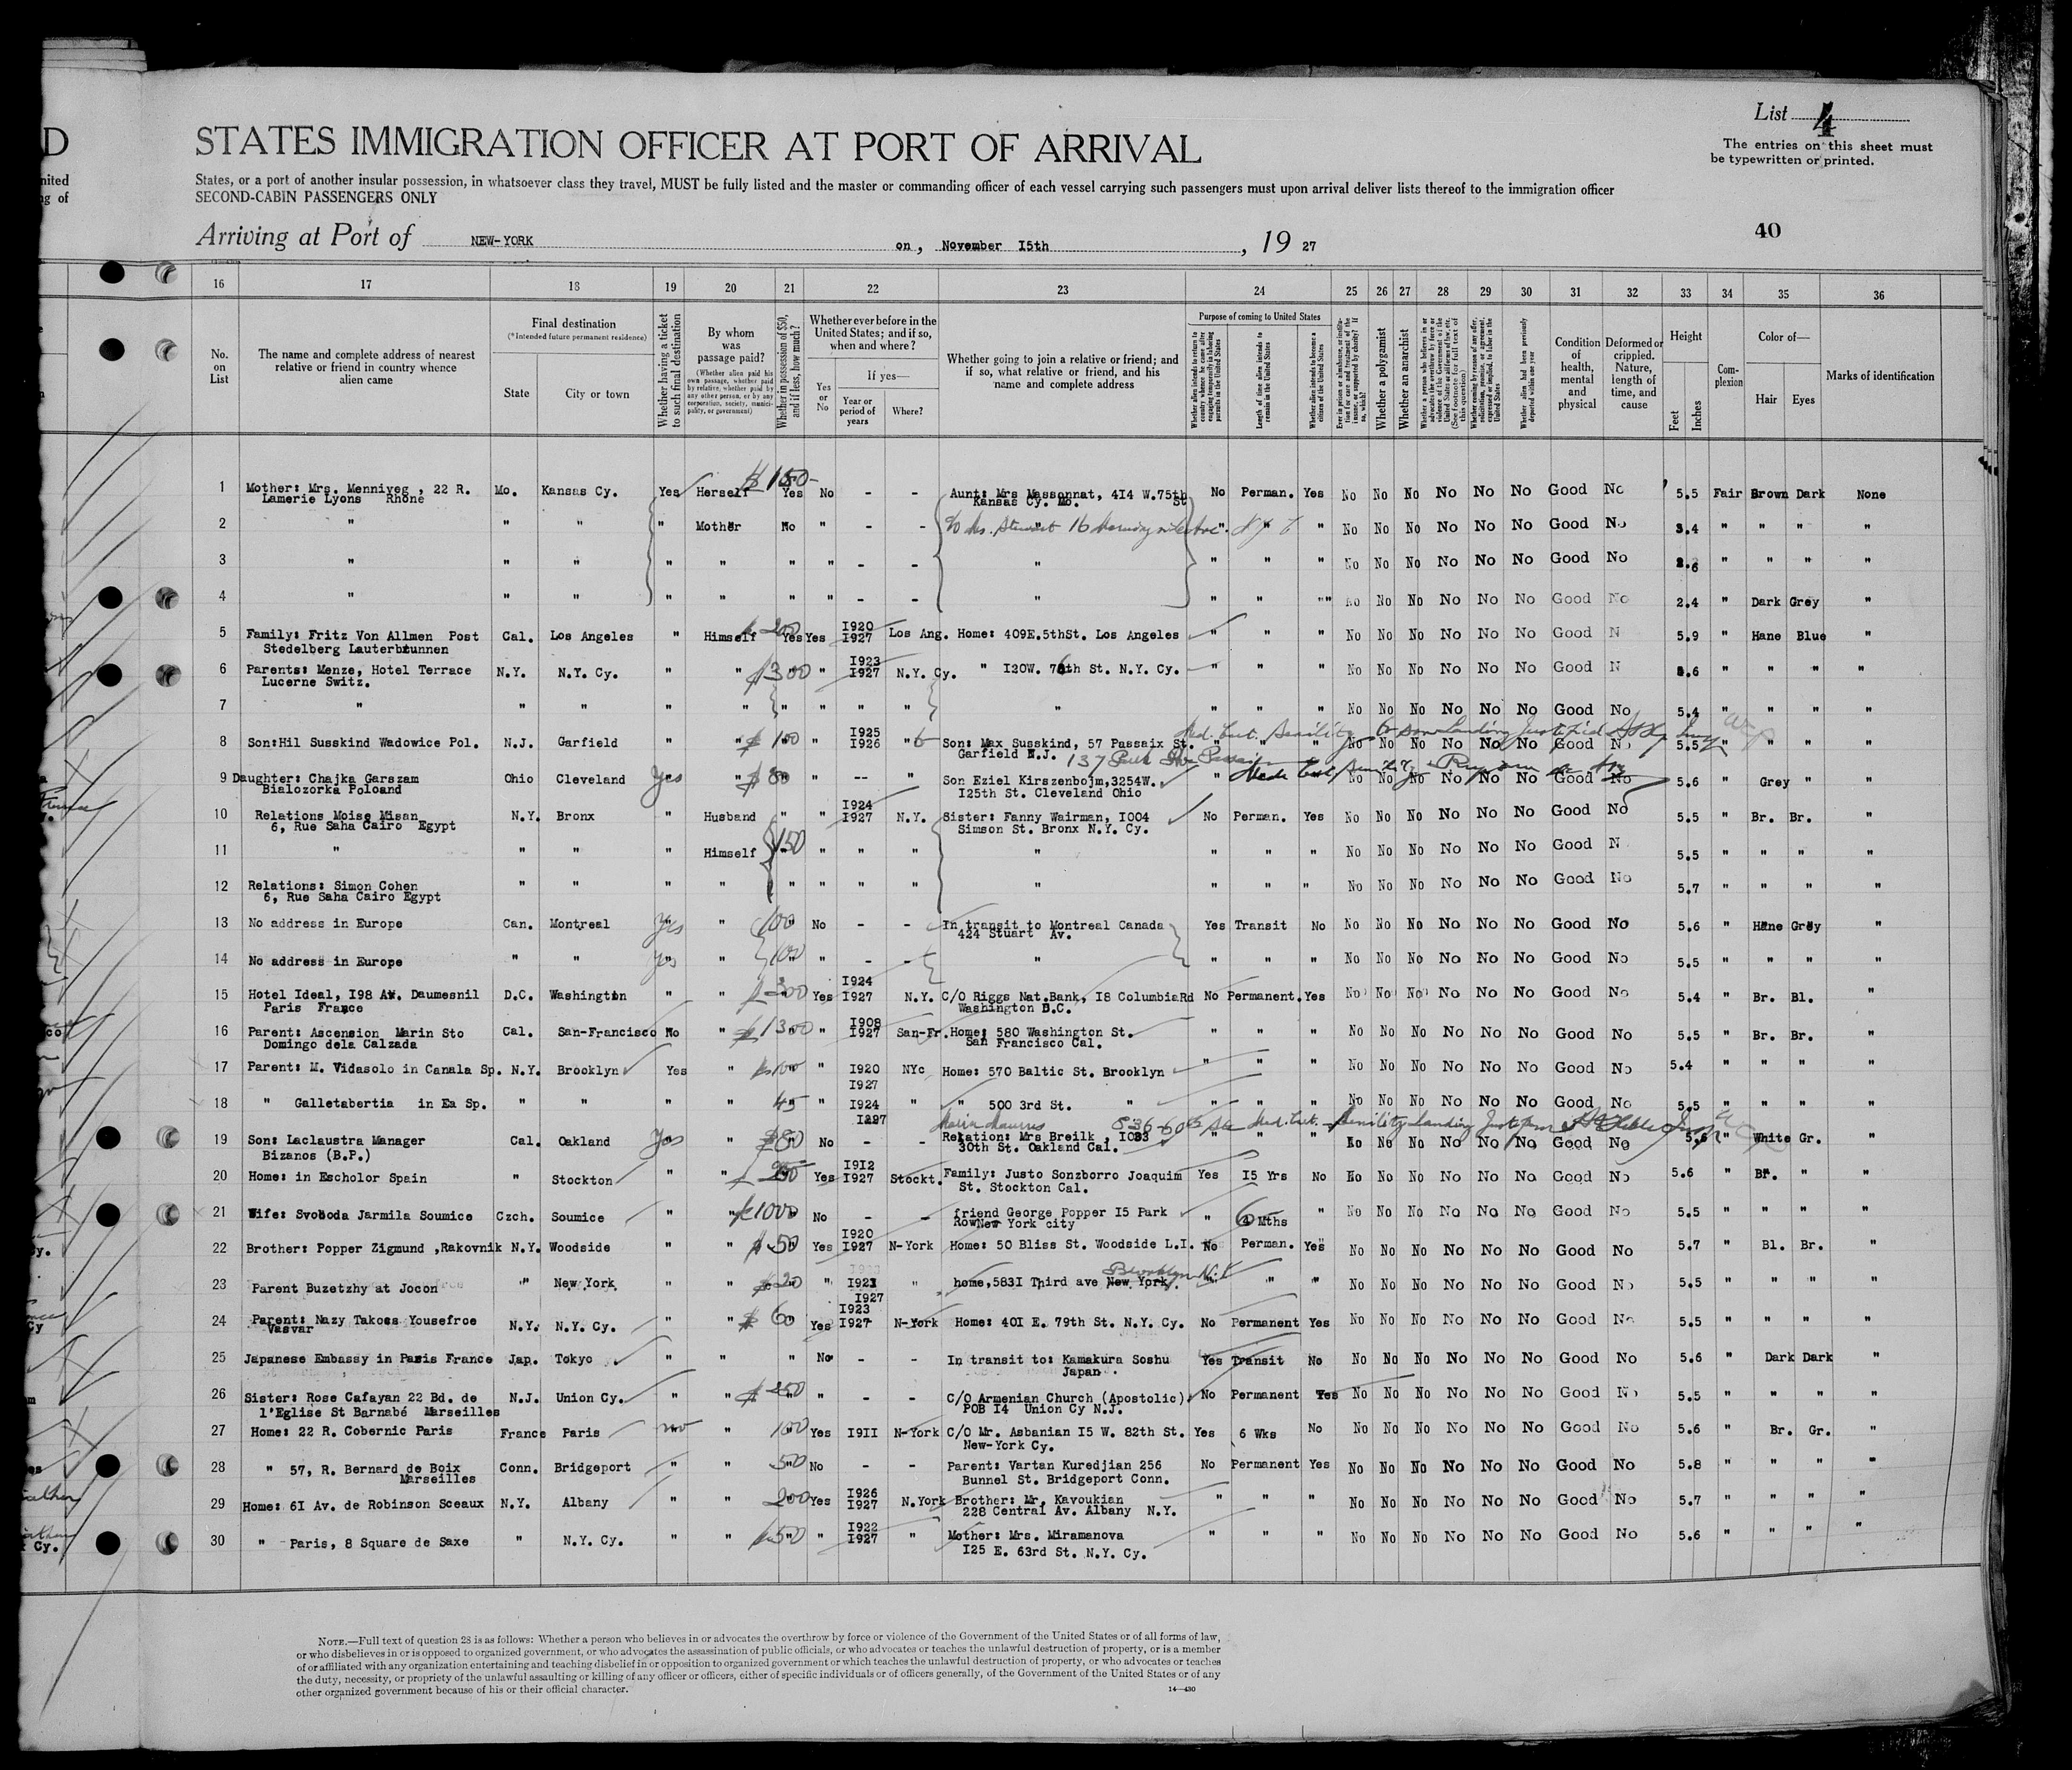 List 4
The entries on this sheet must
be typewritten or printed.
D
STATES IMMIGRATION OFFICER AT PORT OF ARRIVAL
nited
ng of
States, or a port of another insular possession, in whatsoever class they travel, MUST be fully listed and the master or commanding officer of each vessel carrying such passengers must upon arrival deliver lists thereof to the immigration officer
SECOND-CABIN PASSENGERS ONLY
40
Arriving at Port of NEW-YORK on, November I5th, 19 27
16 17 18 19 20 21 22 23 24 25 26 27 28 29 30 31 32 33 34 35 36
No. on List
The name and complete address of nearest relative or friend in country whence alien came
Final destination
(*Intended future permanent residence)
State
City or town
Whether having a ticket to such final destination
By whom was passage paid?
(Whether alien paid his own passage, whether paid by relative, whether paid by any other person, or by any corporation, society, municipality, or government)
Whether in possession of $50, and if less, how much?
Whether ever before in the United States; and if so, when and where?
Yes or No
If yes—
Year or period of years
Where?
Whether going to join a relative or friend; and if so, what relative or friend, and his name and complete address
Purpose of coming to United States
Length of time alien intends to remain in the United States
Whether alien intends to become a citizen of the United States
Whether a polygamist
Whether an anarchist
Whether alien had been previously deported within one year
Condition of health, mental and physical
Deformed or crippled. Nature, length of time, and cause
Height
Feet
Inches
Complexion
Color of—
Hair
Eyes
Marks of identification
1 Mother: Mrs. Menniveg , 22 R. Mo. Kansas Cy. Yes Herself $ 150- Yes No - - Aunt: Mrs Massonnat, 4I4 W.75th No Perman. Yes No No No No No No Good No 5.5 Fair Brown Dark None
Lamerie Lyons Rhone Kansas Cy. Mo. St
2 " " " " Mother No " - - " " " No No No No No No Good No 3.4 " " " "
3 " " " " " " " - - " " " " No No No No No No Good No 2.6 " " " "
4 " " " " " " " - - " " " "" No No No No No No Good No 2.4 " Dark Grey "
5 Family: Fritz Von Allmen Post Cal. Los Angeles " Himself 200 Yes Yes I920 I927 Los Ang. Home: 409E.5thSt. Los Angeles " " " No No No No No No Good N 5.9 " Hane Blue "
Stedelberg Lauterbrunnen
6 Parents: Menze, Hotel Terrace N.Y. N.Y. Cy. " " $300 " I923 I927 N.Y. Cy. " I20W. 76th St. N.Y. Cy. " " " No No No No No No Good N 5.6 " " " "
Lucerne Switz.
7 " " " " " " " " " " " " " No No No No No No Good No 5.4 " " " "
8 Son:Hil Susskind Wadowice Pol. N.J. Garfield " " $ 100 " I925 I926 " Son: Max Susskind, 57 Passaix St. " " " No No No No No No Good No 5.5 " " " "
Garfield N.J.
9 Daughter: Chajka Garszam Ohio Cleveland Yes " $ 80 " -- " Son Eziel Kirszenbojm,3254W. " No No No No No No Good No 5.6 Grey " "
Bialozorka Poloand I25th St. Cleveland Ohio
10 Relations Moise Misan N.Y. Bronx " Husband " " I924 I927 N.Y. Sister: Fanny Wairman, I004 No Perman. Yes No No No No No No Good No 5.5 " Br. Br. "
6, Rue Saha Cairo Egypt Simson St. Bronx N.Y. Cy.
11 " " " " Himself 150 " " " " " " " No No No No No No Good N 5.5 " " " "
12 Relations: Simon Cohen " " " " " " " " " " " " No No No No No No Good No 5.7 " " " "
6, Rue Saha Cairo Egypt
13 No address in Europe Can. Montreal Yes " 100 No - - In transit to Montreal Canada Yes Transit No No No No No No No Good No 5.6 " Hane Grey "
424 Stuart Av.
14 No address in Europe " " Yes " 100 " - - " " " " No No No No No No Good No 5.5 " " " "
15 Hotel Ideal, I98 Av. Daumesnil D.C. Washington " " 300 Yes I924 I927 N.Y. C/O Riggs Nat.Bank, I8 ColumbiaRd No Permanent. Yes No No No No No No Good No 5.4 " Br. Bl. "
Paris France Washington D.C.
16 Parent: Ascension Marin Sto Cal. San-Francisco No " $ 1300 " I908 I927 San-Fr. Home: 580 Washington St. " " " No No No No No No Good No 5.5 " Br. Br. "
Domingo dela Calzada San Francisco Cal.
17 Parent: M. Vidasolo in Canala Sp. N.Y. Brooklyn Yes " $100 " I920 I927 NYc Home: 570 Baltic St. Brooklyn " " " No No No No No No Good No 5.4 " " " "
18 " Galletabertia in Ea Sp. " " " " 45 " I924 I927 " " 500 3rd St. " " " " No No No No No No Good No 5.5 " " " "
19 Son: Laclaustra Manager Cal. Oakland Yes " $80 No - - Relation: Mrs Breilk , I083 " " " No No No No No No Good No 5.6 " White Gr. "
Bizanos (B.P.) 30th St. Oakland Cal.
20 Home: in Escholor Spain " Stockton " " 250 Yes I9I2 I927 Stockt. Family: Justo Sonzborro Joaquim Yes I5 Yrs No No No No No No No Good No 5.6 " Br. " "
St. Stockton Cal.
21 Wife: Svoboda Jarmila Soumice Czch. Soumice " " $1000 No - - friend George Popper I5 Park " 6 Mths " No No No No No No Good No 5.5 " " " "
Row New York city
22 Brother: Popper Zigmund ,Rakovnik N.Y. Woodside " " $ 50 Yes I920 I927 N-York Home: 50 Bliss St. Woodside L.I. No Perman. Yes No No No No No No Good No 5.7 " Bl. Br. "
23 Parent Buzetzhy at Jocon " New York " " $20 " I923 I927 " home,583I Third ave New York. Brooklyn N.Y " " No No No No No No Good No 5.5 " " " "
24 Parent: Nazy Takocs Yousefroe N.Y. N.Y. Cy. " " $ 60 Yes I923 I927 N-York Home: 40I E. 79th St. N.Y. Cy. No Permanent Yes No No No No No No Good No 5.5 " " " "
Vasvar
25 Japanese Embassy in Paris France Jap. Tokyo " " " No - - In transit to: Kamakura Soshu Yes Transit No No No No No No No Good No 5.6 " Dark Dark "
Japan .
26 Sister: Rose Cafayan 22 Bd. de N.J. Union Cy. " " $ 250 " - - C/O Armenian Church (Apostolic) No Permanent Yes No No No No No No Good No 5.5 " " " "
l'Eglise St Barnabé Marseilles POB I4 Union Cy N.J.
27 Home: 22 R. Cobernic Paris France Paris no " 100 Yes I9II N-York C/O Mr. Asbanian I5 W. 82th St. Yes 6 Wks No No No No No No No Good No 5.6 " Br. Gr. "
New-York Cy.
28 " 57, R. Bernard de Boix Conn. Bridgeport " " 500 No - - Parent: Vartan Kuredjian 256 No Permanent Yes No No No No No No Good No 5.8 " " " "
Marseilles Bunnel St. Bridgeport Conn.
29 Home: 6I Av. de Robinson Sceaux N.Y. Albany " " 200 Yes I926 I927 N.York Brother: Mr. Kavoukian " " " No No No No No No Good No 5.7 " " " "
228 Central Av. Albany N.Y.
30 " Paris, 8 Square de Saxe " N.Y. Cy. " " 50 " I922 I927 " Mother: Mrs. Miramanova " " " No No No No No No Good No 5.6 " " " "
I25 E. 63rd St. N.Y. Cy.
NOTE.—Full text of question 28 is as follows: Whether a person who believes in or advocates the overthrow by force or violence of the Government of the United States or of all forms of law,
or who disbelieves in or is opposed to organized government, or who advocates the assassination of public officials, or who advocates or teaches the unlawful destruction of property, or is a member
of or affiliated with any organization entertaining and teaching disbelief in or opposition to organized government or which teaches the unlawful destruction of property, or who advocates or teaches
the duty, necessity, or propriety of the unlawful assaulting or killing of any officer or officers, either of specific individuals or of officers generally, of the Government of the United States or of any
other organized government because of his or their official character.
14—430